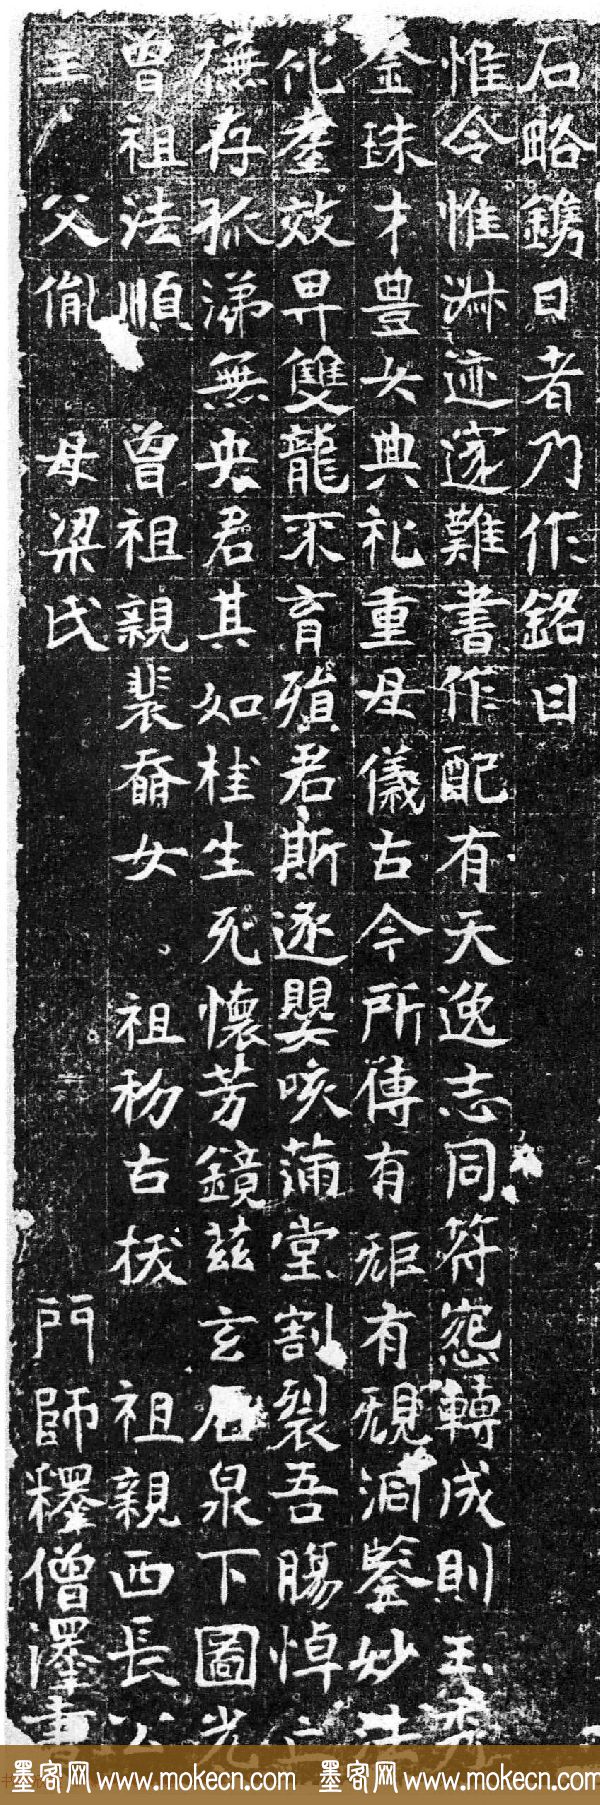 石略鐫日者乃作銘曰
惟令惟淋迹遂難書作配有天逸志同符怨轉成則玉秀
金珠才豊女典礼重母儀古今所傳有規有覌洞鑒妙法
化臺效畀雙龍不育殞君斯逐嬰咳蒲堂割裂吾腸悼亡
撫存孤涕無央君其如桂生死懷芳鏡茲玄石泉下圖光
曾祖法順 曾祖親裴奮女 祖初古拔 祖親西長公主
父胤 母梁氏 門師釋僧澤書
墨客网 www.mokecn.com 墨客网 www.mokecn.com